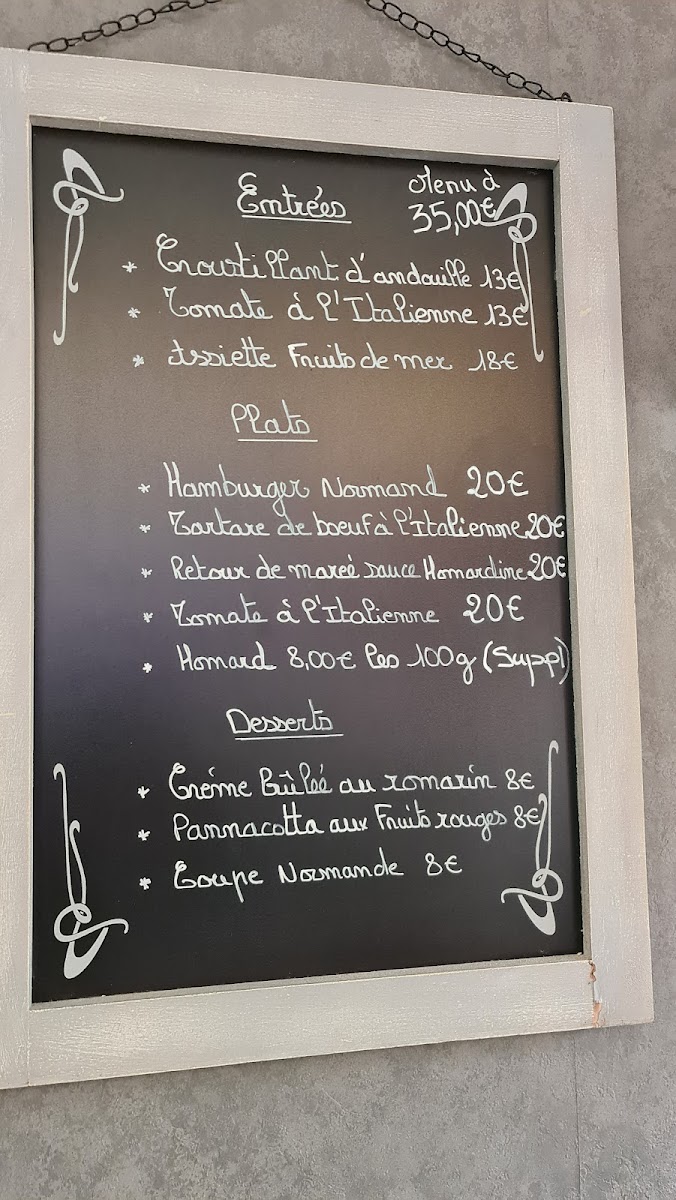 Entrées
Menu à
35,00€
* Croustillant d'andouille 13€
* Tomate à l'Italienne 13€
* Assiette Fruits de mer 18€
Plats
* Hamburger Normand 20€
* Tartare de boeuf à l'Italienne 20€
* Retour de mareé sauce Homardine 20€
* Tomate à l'Italienne 20€
* Homard 8,00€ les 100g (Suppl)
Desserts
* Créme Bûlée au romarin 8€
* Pannacotta aux Fruits rouges 8€
* Coupe Normande 8€